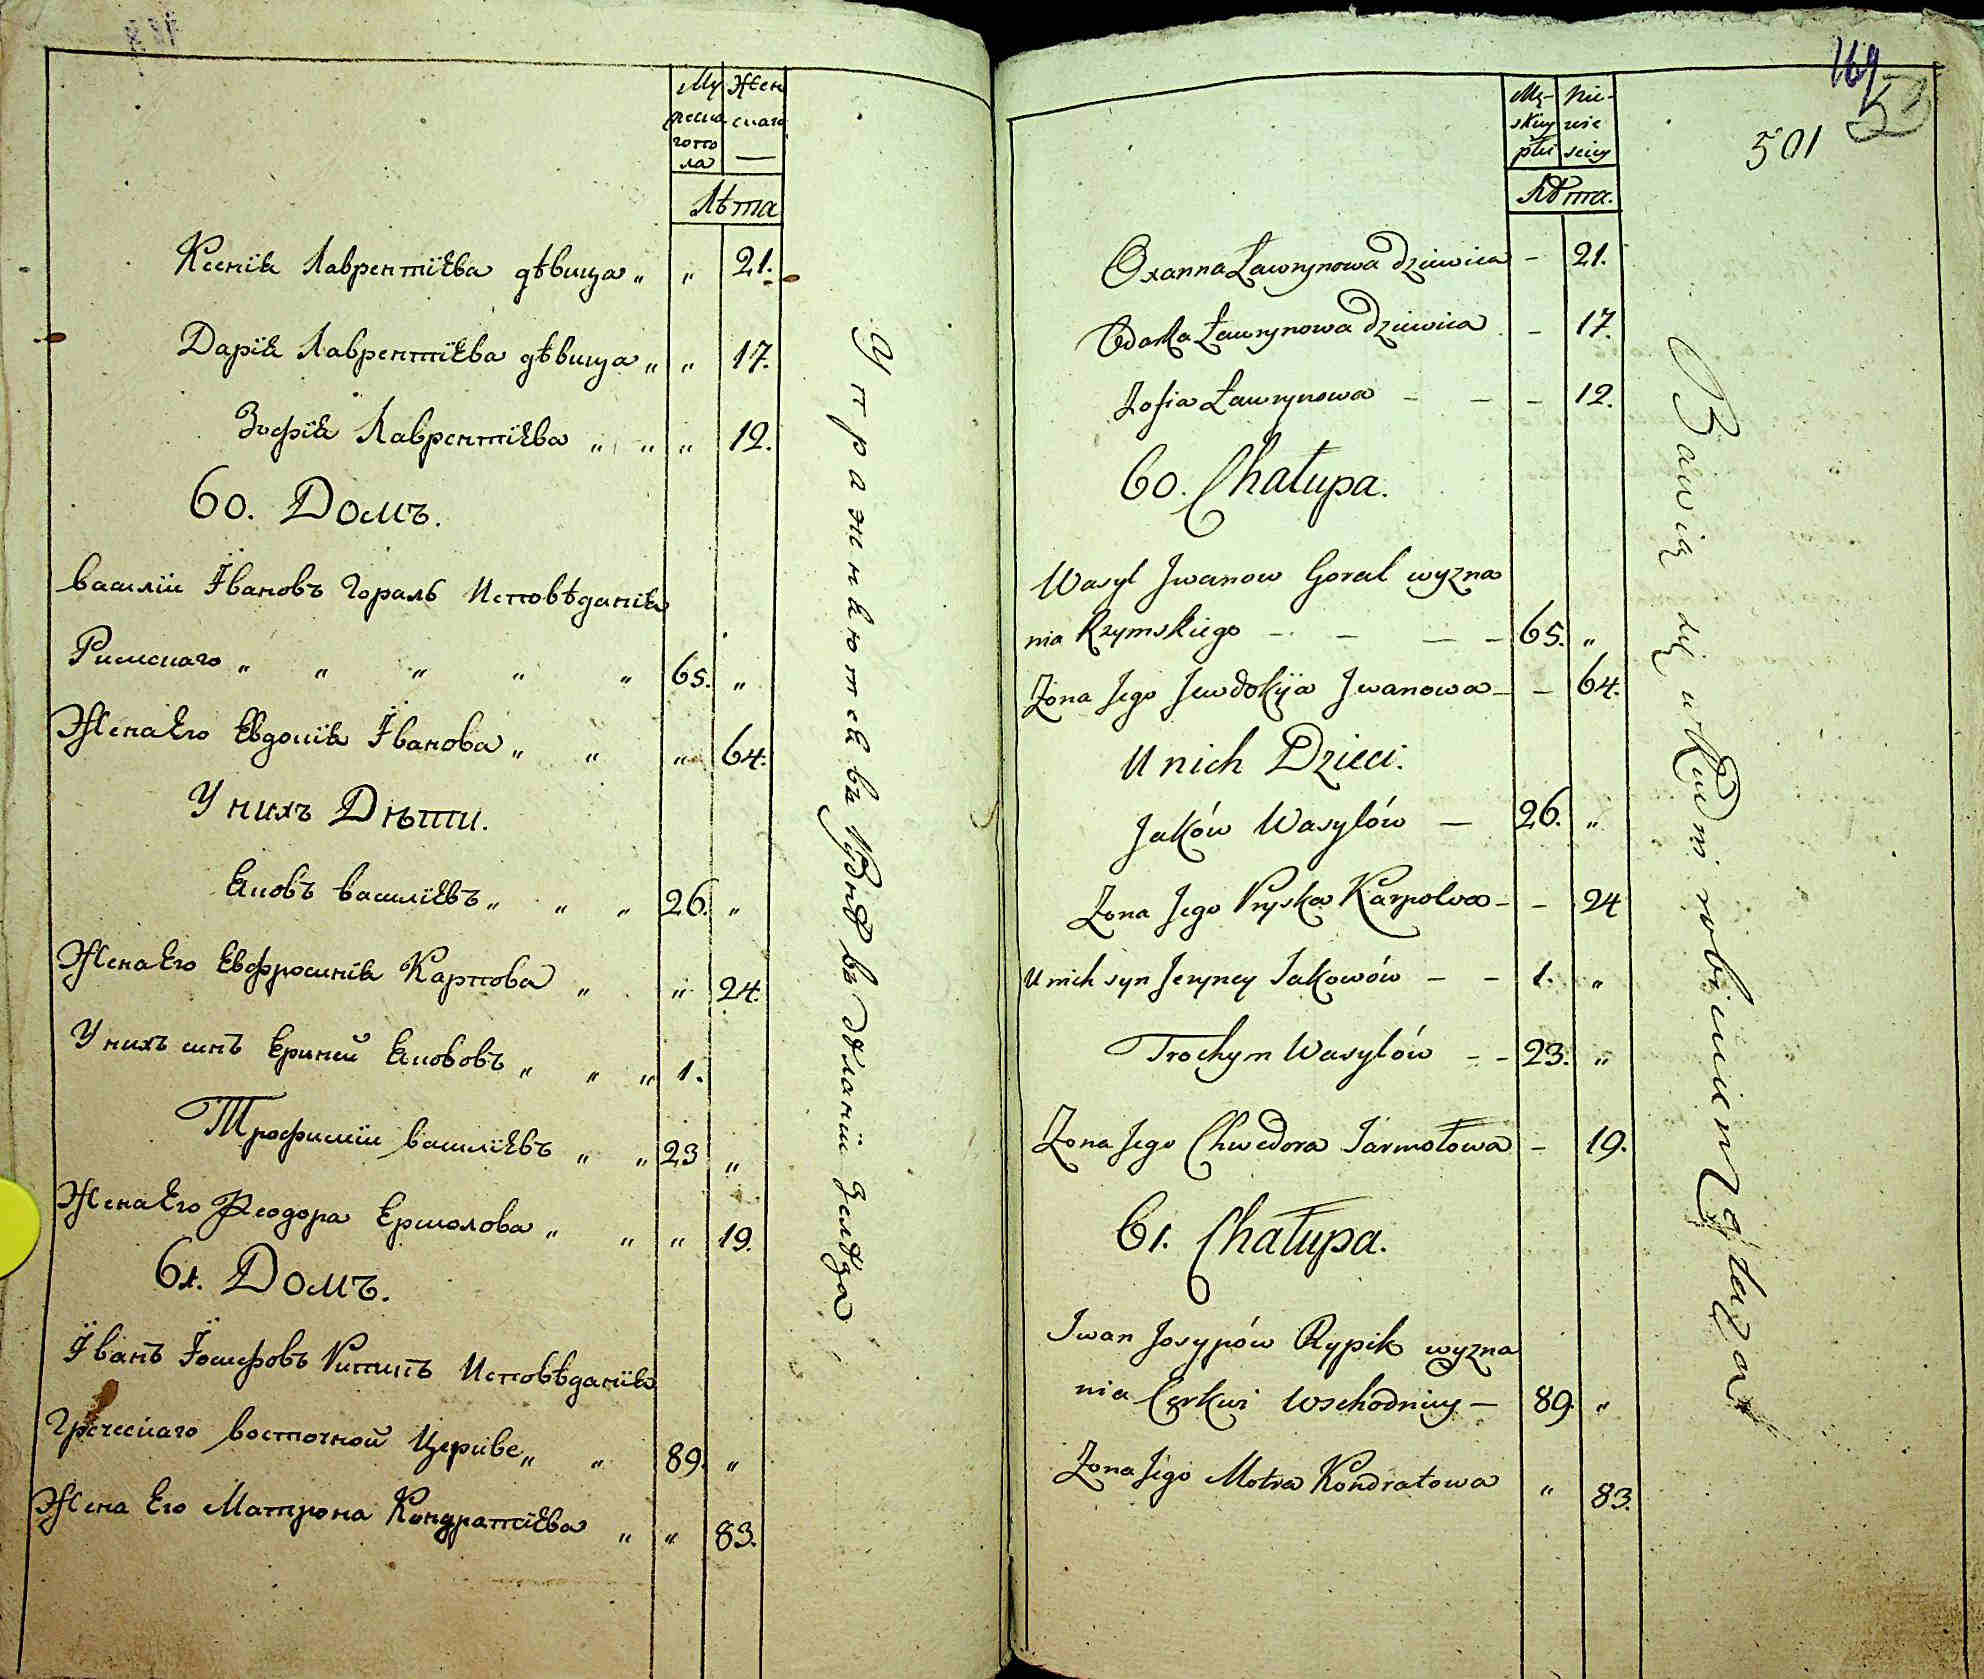 Му Жен
жеска скаго
го по
ла —
Лѣта
Ксенїя Лаврентїева дѣвица „ „ 21.
Дарїя Лаврентїева дѣвица „ „ 17.
Зофїя Лаврентїева „ „ „ 12.
60. Домъ.
Василїи Ївановъ Гораль Исповѣданїя
Римскаго „ „ „ „ „ 65. „
Жена Его Евдокїя Їванова „ „ „ 64.
У нихъ Дѣти.
Яковъ Василїевъ „ „ „ 26. „
Жена Его Евфросинїя Карпова „ „ 24.
У нихъ синъ Ериней Якововъ „ „ „ 1.
Трофимїи Василїевъ „ „ 23 „
Жена Его Феодора Ермолова „ „ „ 19.
61. Домъ.
Їванъ Їосифовъ Рипикъ Исповѣданїя
Греческаго Восточной Церкве „ „ 89. „
Жена Его Матрона Кондратїева „ „ 83.
Упражняются въ Рудне въ дѣланїи Желѣза
169
52
501
Mę- Nie-
skiey wie
płci sciey
Лѣта.
Oxanna Ławrynowa Dziewica - 21.
Odarka Ławrynowa Dziewica - 17.
Zofia Ławrynowa - - - 12.
60. Chałupa.
Wasyl Jwanow Goral wyzna
nia Rzymskiego - - - - 65. „
Zona Jego Jewdokija Jwanowa - - 64.
U nich Dzieci.
Jaków Wasylów - 26. „
Zona Jego Pryska Karpolwa - - 24
U nich syn Jeryney Jakowów - - 1. „
Trochym Wasylów - - 23. „
Zona Jego Chwedora Jarmołowa - 19.
61. Chałupa.
Iwan Josypów Rypik wyzna
nia Cerkwi Wschodniey - 89. „
Zona Jego Motra Kondratowa „ 83.
Bawią się w Rudni robieniem Żelaza